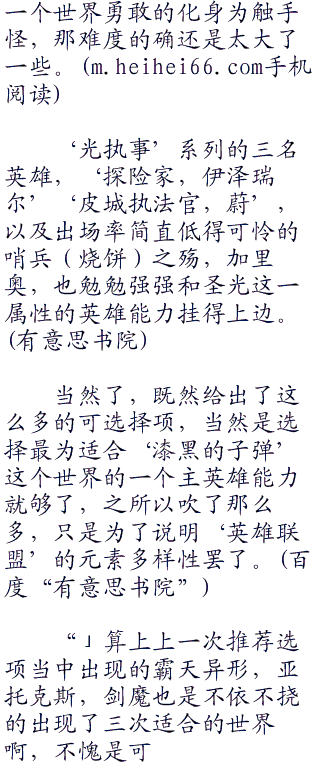 一个世界勇敢的化身为触手
怪，那难度的确还是太大了
一些。(m.heihei66.com手机
阅读)
‘光执事’系列的三名
英雄，‘探险家，伊泽瑞
尔’‘皮城执法官，蔚’，
以及出场率简直低得可怜的
哨兵（烧饼）之殇，加里
奥，也勉勉强强和圣光这一
属性的英雄能力挂得上边。
(有意思书院)
当然了，既然给出了这
么多的可选择项，当然是选
择最为适合‘漆黑的子弹’
这个世界的一个主英雄能力
就够了，之所以吹了那么
多，只是为了说明‘英雄联
盟’的元素多样性罢了。(百
度“有意思书院”)
“」算上上一次推荐选
项当中出现的霸天异形，亚
托克斯，剑魔也是不依不挠
的出现了三次适合的世界
啊，不愧是可